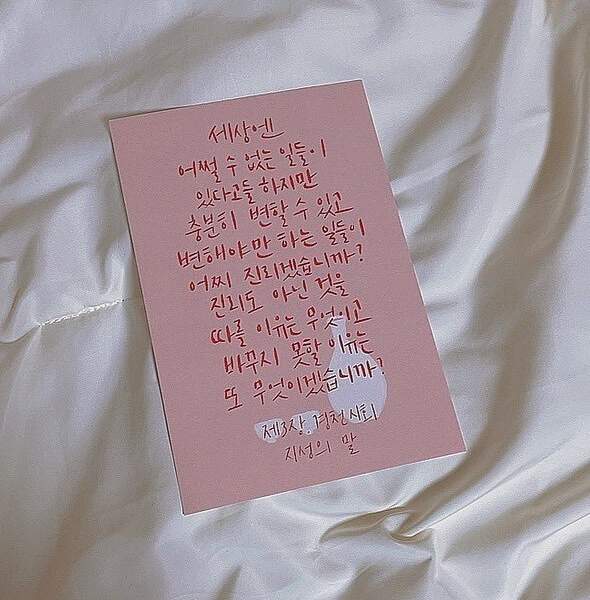 세상엔
어쩔 수 없는 일들이
있다고들 하지만
충분히 변할 수 있고
변해야만 하는 일들이
어찌 진리겠습니까?
진리도 아닌 것을
따를 이유는 무엇이고
바꾸지 못할 이유는
또 무엇이겠습니까?
제3장. 경천시회
지성의 말